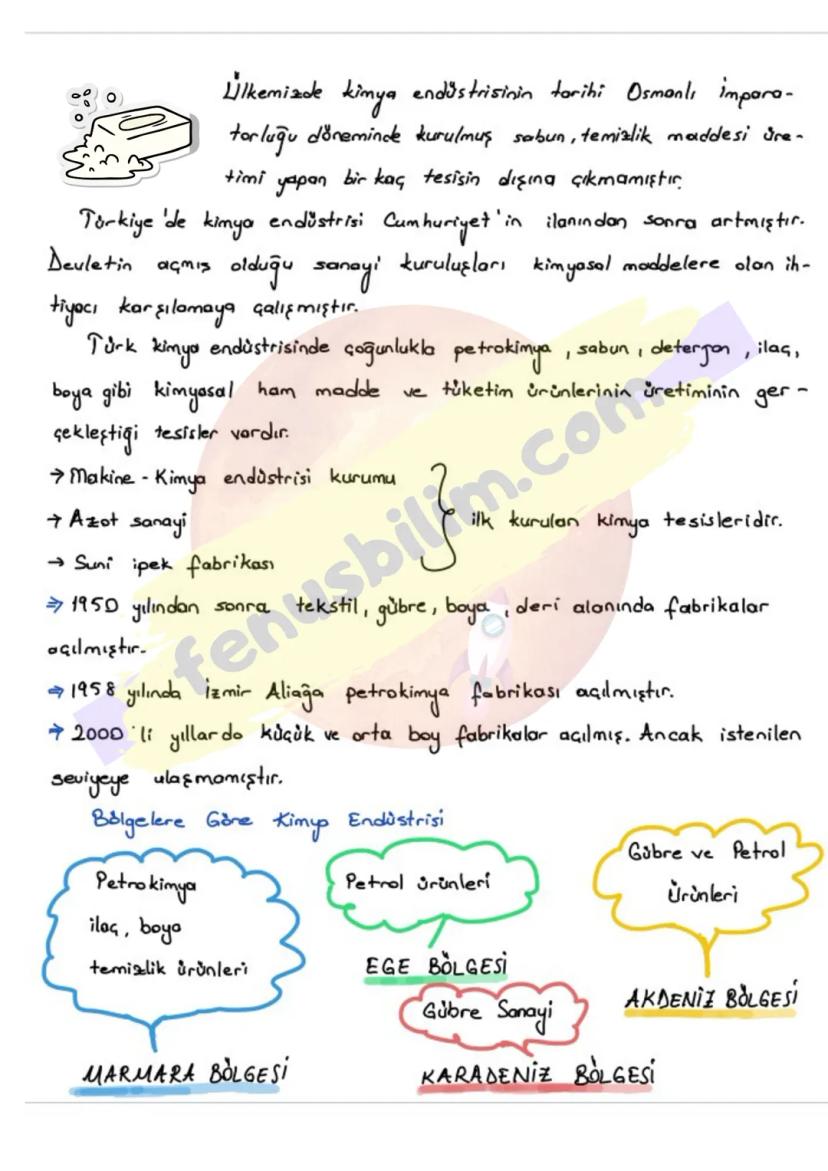 Ülkemizde kimya endüstrisinin tarihi Osmanlı İmpara-
torluğu döneminde kurulmuş sabun, temizlik maddesi üre-
timi yapan bir kaç tesisin dışına çıkmamıştır.
Türkiye'de kimya endüstrisi Cumhuriyet'in ilanından sonra artmıştır.
Devletin açmış olduğu sanayi kuruluşları kimyasal maddelere olan ih-
tiyacı karşılamaya çalışmıştır.
Türk kimya endüstrisinde çoğunlukla petrokimya, sabun, deterjan, ilaç,
boya gibi kimyasal ham madde ve tüketim ürünlerinin üretiminin ger-
çekleştiği tesisler vardır.
→ Makine - Kimya endüstrisi kurumu
→ Azot sanayi
ilk kurulan kimya tesisleridir.
→ Suni ipek fabrikası
⇒ 1950 yılından sonra tekstil, gübre, boya, deri alanında fabrikalar
açılmıştır.
⇒ 1958 yılında İzmir Aliağa petrokimya fabrikası açılmıştır.
→ 2000'li yıllarda küçük ve orta boy fabrikalar açılmış. Ancak istenilen
seviyeye ulaşmamıştır.
fenusbilim.com
Bölgelere Göre Kimya Endüstrisi
Petrokimya
ilaç, boya
temizlik ürünleri
MARMARA BÖLGESİ
Petrol ürünleri
EGE BÖLGESİ
Gübre Sanayi
KARADENİZ BÖLGESİ
Gübre ve Petrol
Ürünleri
AKDENİZ BÖLGESİ